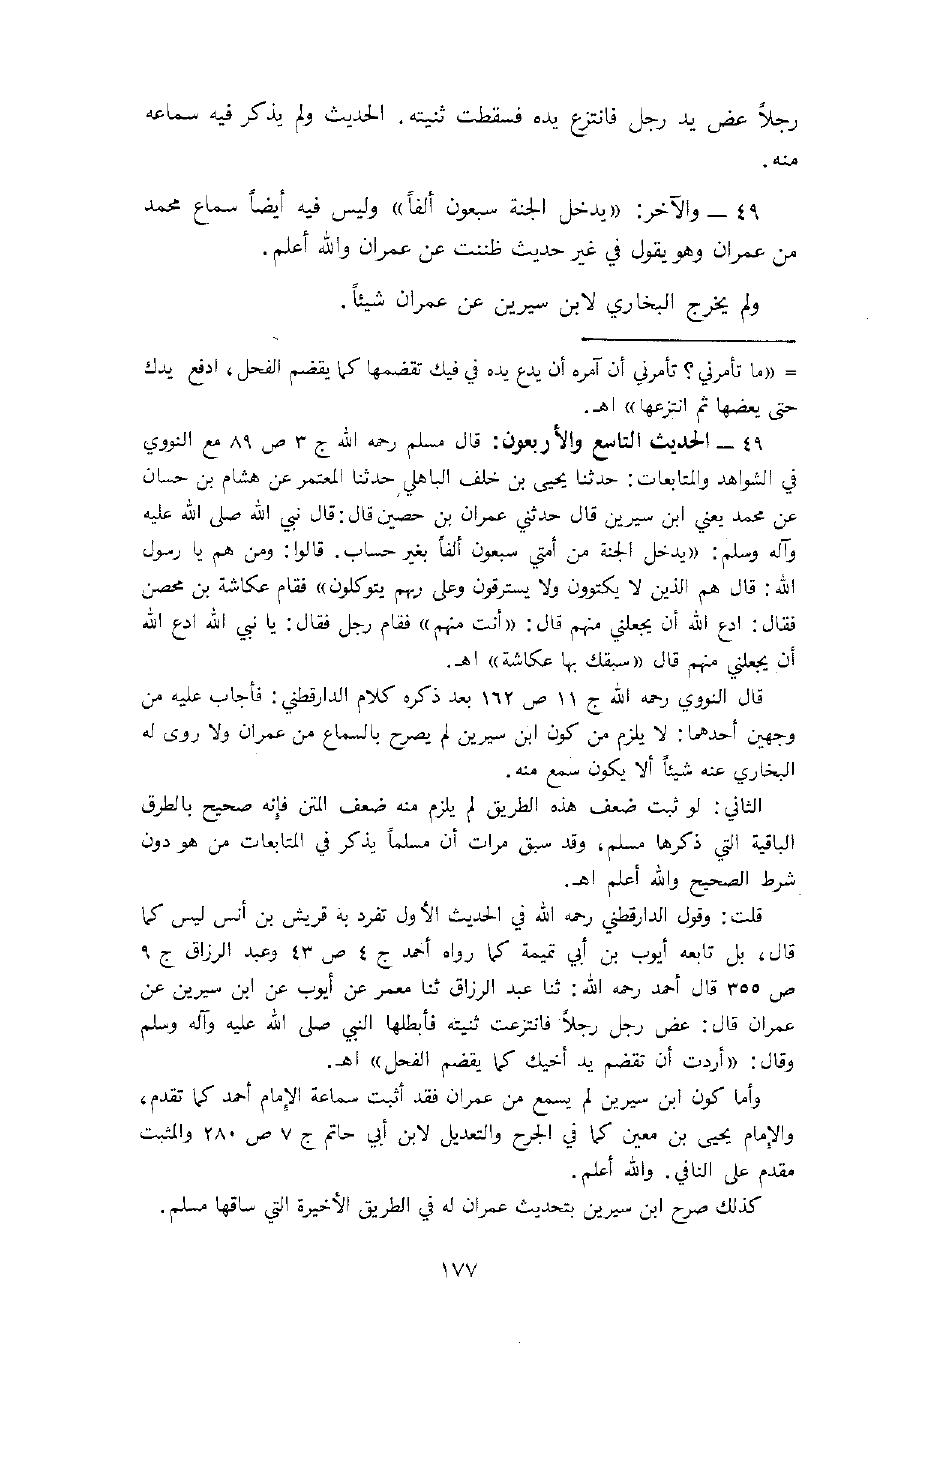 رجلاً عض يد رجل فانتزع يده فسقطت ثنيته. الحديث ولم يذكر فيه سماعه
منه.
٤٩ ــ والآخر: «يدخل الجنة سبعون ألفاً» وليس فيه أيضاً سماع محمد
من عمران وهو يقول في غير حديث ظننت عن عمران والله أعلم.
ولم يخرج البخاري لابن سيرين عن عمران شيئاً.
= «ما تأمرني؟ تأمرني أن آمره أن يدع يده في فيك تقضمها كما يقضم الفحل، ادفع يدك
حتى يعضها ثم انتزعها» اهـ.
٤٩ ــ الحديث التاسع والأربعون: قال مسلم رحمه الله ج ٣ ص ٨٩ مع النووي
في الشواهد والمتابعات: حدثنا يحيى بن خلف الباهلي حدثنا المعتمر عن هشام بن حسان
عن محمد يعني ابن سيرين قال حدثني عمران بن حصين قال: قال نبي الله صلى الله عليه
وآله وسلم: «يدخل الجنة من أمتي سبعون ألفاً بغير حساب. قالوا: ومن هم يا رسول
الله: قال هم الذين لا يكتوون ولا يسترقون وعلى ربهم يتوكلون» فقام عكاشة بن محصن
فقال: ادع الله أن يجعلني منهم قال: «أنت منهم» فقام رجل فقال: يا نبي الله ادع الله
أن يجعلني منهم قال «سبقك بها عكاشة» اهـ.
قال النووي رحمه الله ج ١١ ص ١٦٢ بعد ذكره كلام الدارقطني: فأجاب عليه من
وجهين أحدهما: لا يلزم من كون ابن سيرين لم يصرح بالسماع من عمران ولا روى له
البخاري عنه شيئاً ألا يكون سمع منه.
الثاني: لو ثبت ضعف هذه الطريق لم يلزم منه ضعف المتن فإنه صحيح بالطرق
الباقية التي ذكرها مسلم، وقد سبق مرات أن مسلماً يذكر في المتابعات من هو دون
شرط الصحيح والله أعلم اهـ.
قلت: وقول الدارقطني رحمه الله في الحديث الأول تفرد به قريش بن أنس ليس كما
قال، بل تابعه أيوب بن أبي تميمة كما رواه أحمد ج ٤ ص ٤٣ وعبد الرزاق ج ٩
ص ٣٥٥ قال أحمد رحمه الله: ثنا عبد الرزاق ثنا معمر عن أيوب عن ابن سيرين عن
عمران قال: عض رجل رجلاً فانتزعت ثنيته فأبطلها النبي صلى الله عليه وآله وسلم
وقال: «أردت أن تقضم يد أخيك كما يقضم الفحل» اهـ.
وأما كون ابن سيرين لم يسمع من عمران فقد أثبت سماعة الإمام أحمد كما تقدم،
والإمام يحيى بن معين كما في الجرح والتعديل لابن أبي حاتم ج ٧ ص ٢٨٠ والمثبت
مقدم على النافي. والله أعلم.
كذلك صرح ابن سيرين بتحديث عمران له في الطريق الأخيرة التي ساقها مسلم.
١٧٧